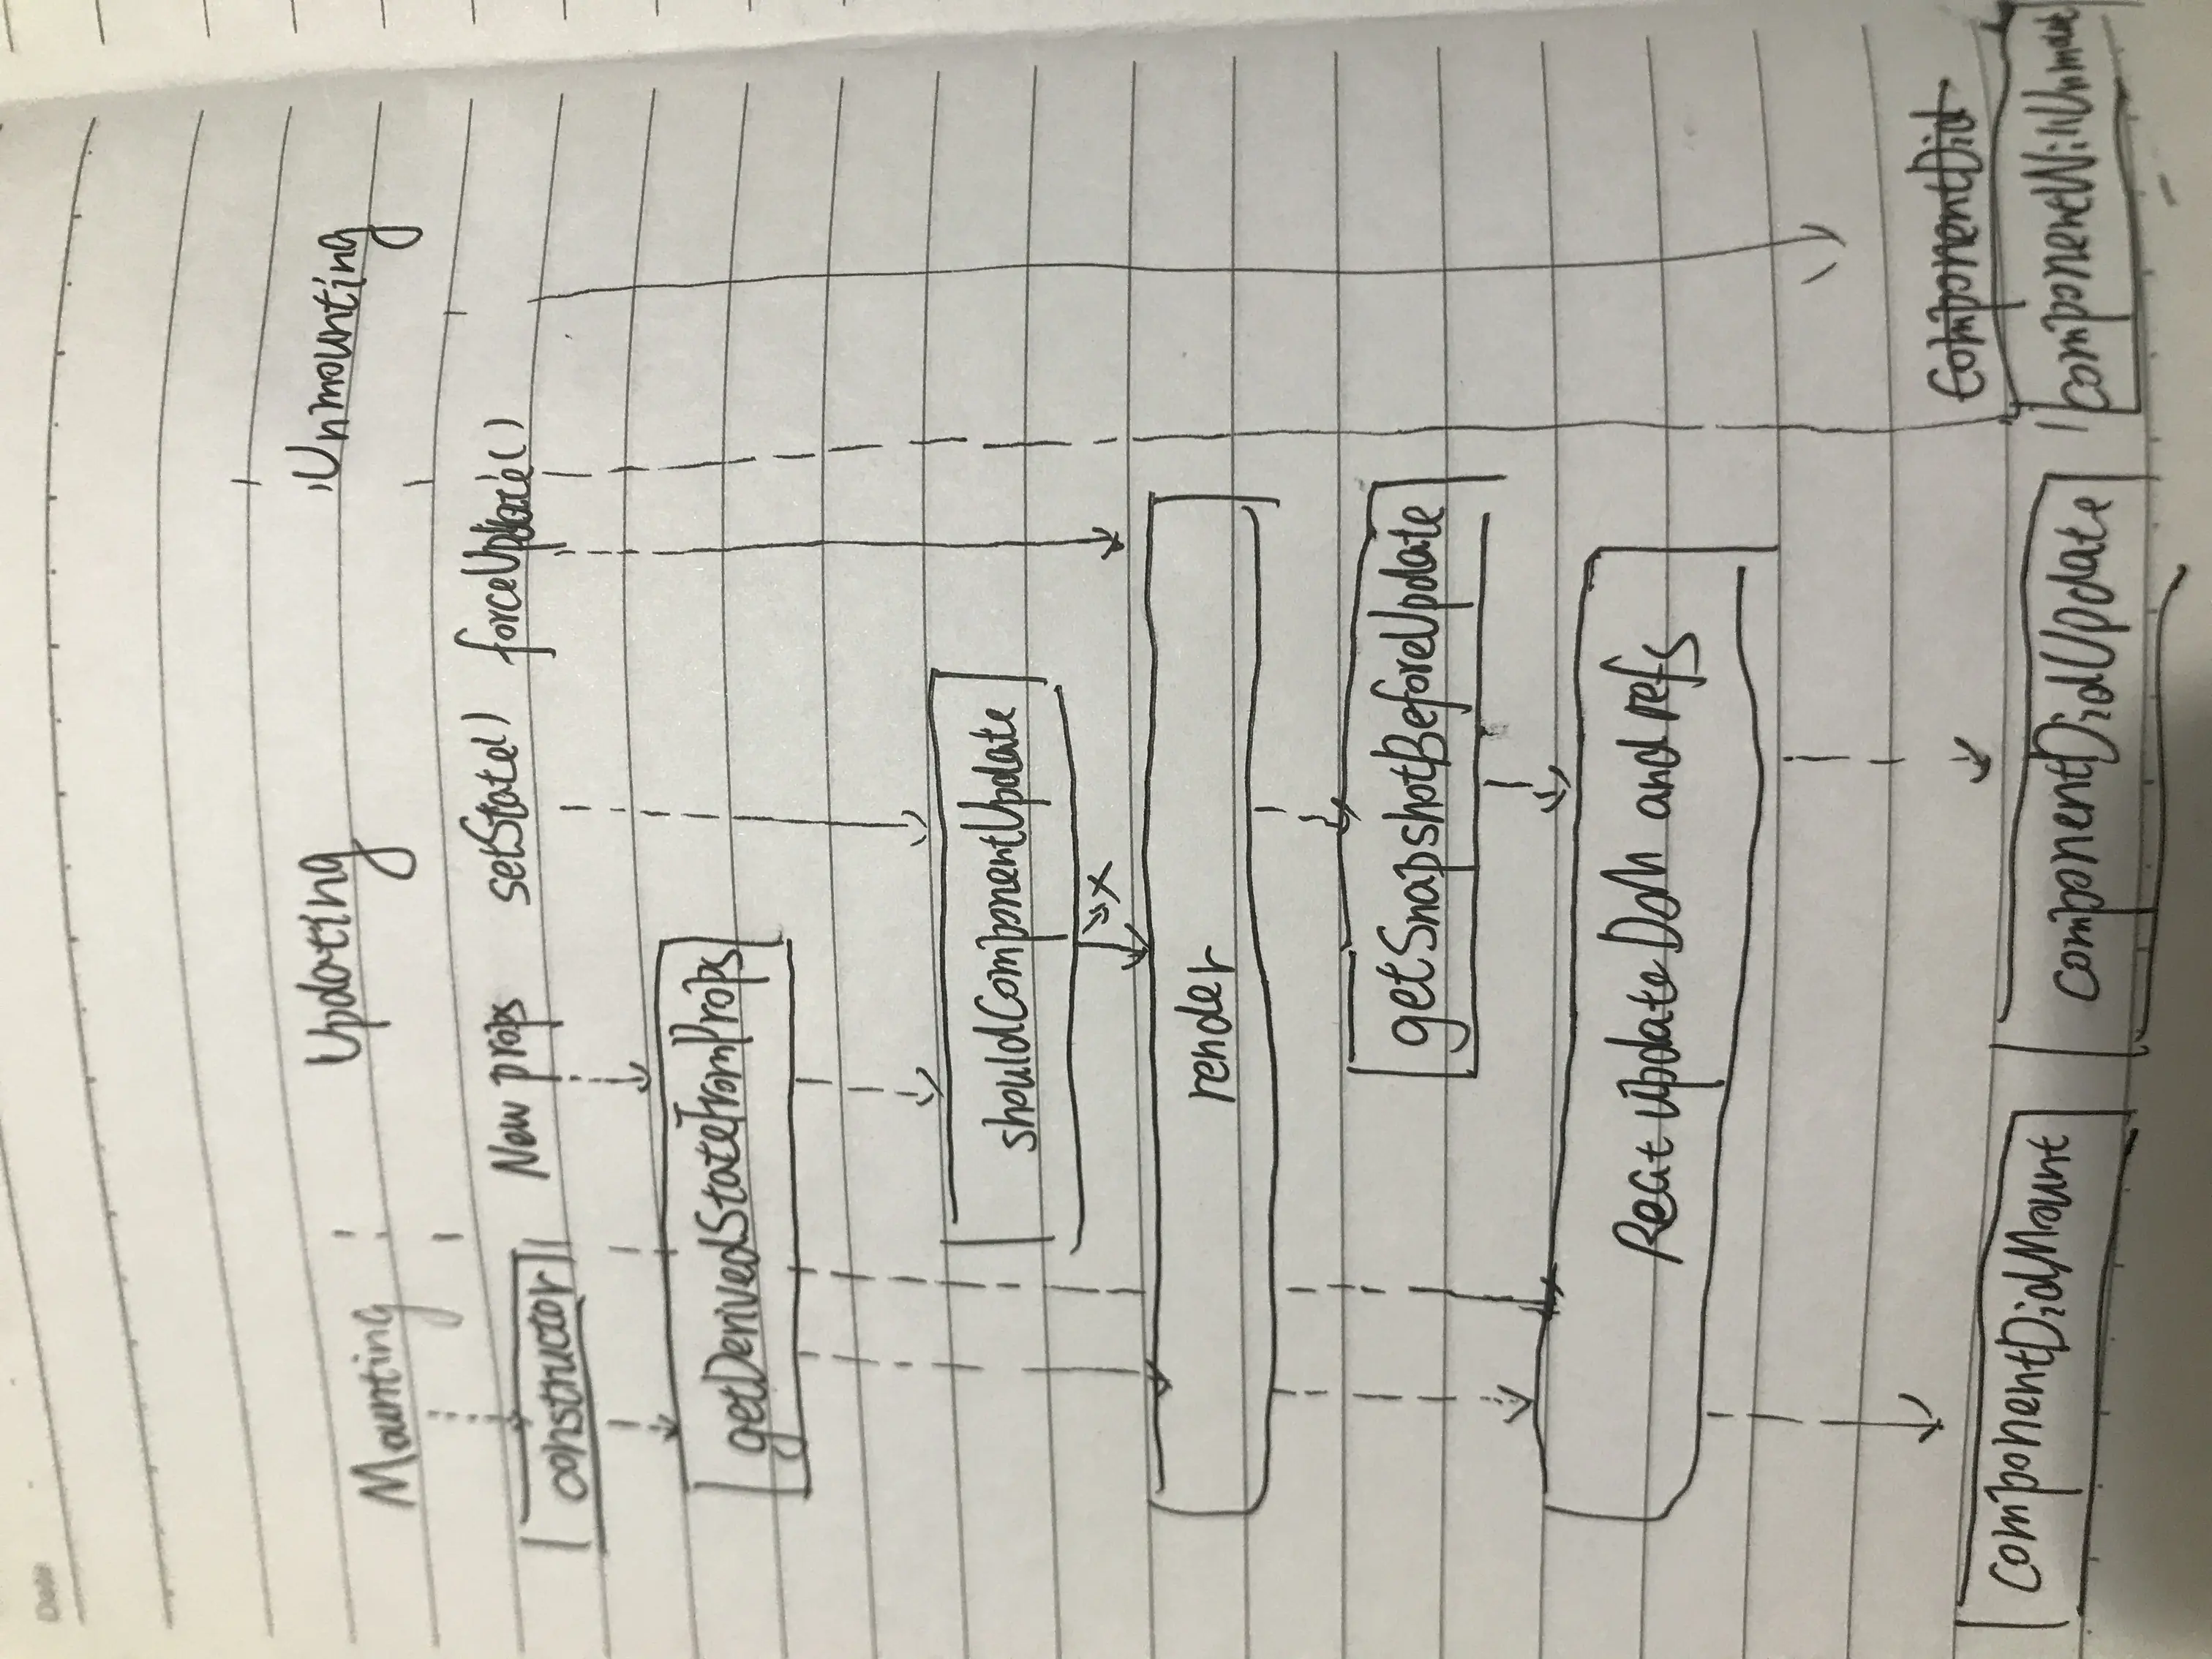 Date
Mounting Updating Unmounting
constructor New props setState() forceUpdate()
getDerivedStateFromProps
shouldComponentUpdate
x
render
getSnapshotBeforeUpdate
Reat update Dom and refs
componentDid
componentDidMount componentDidUpdate componentWillUnmount